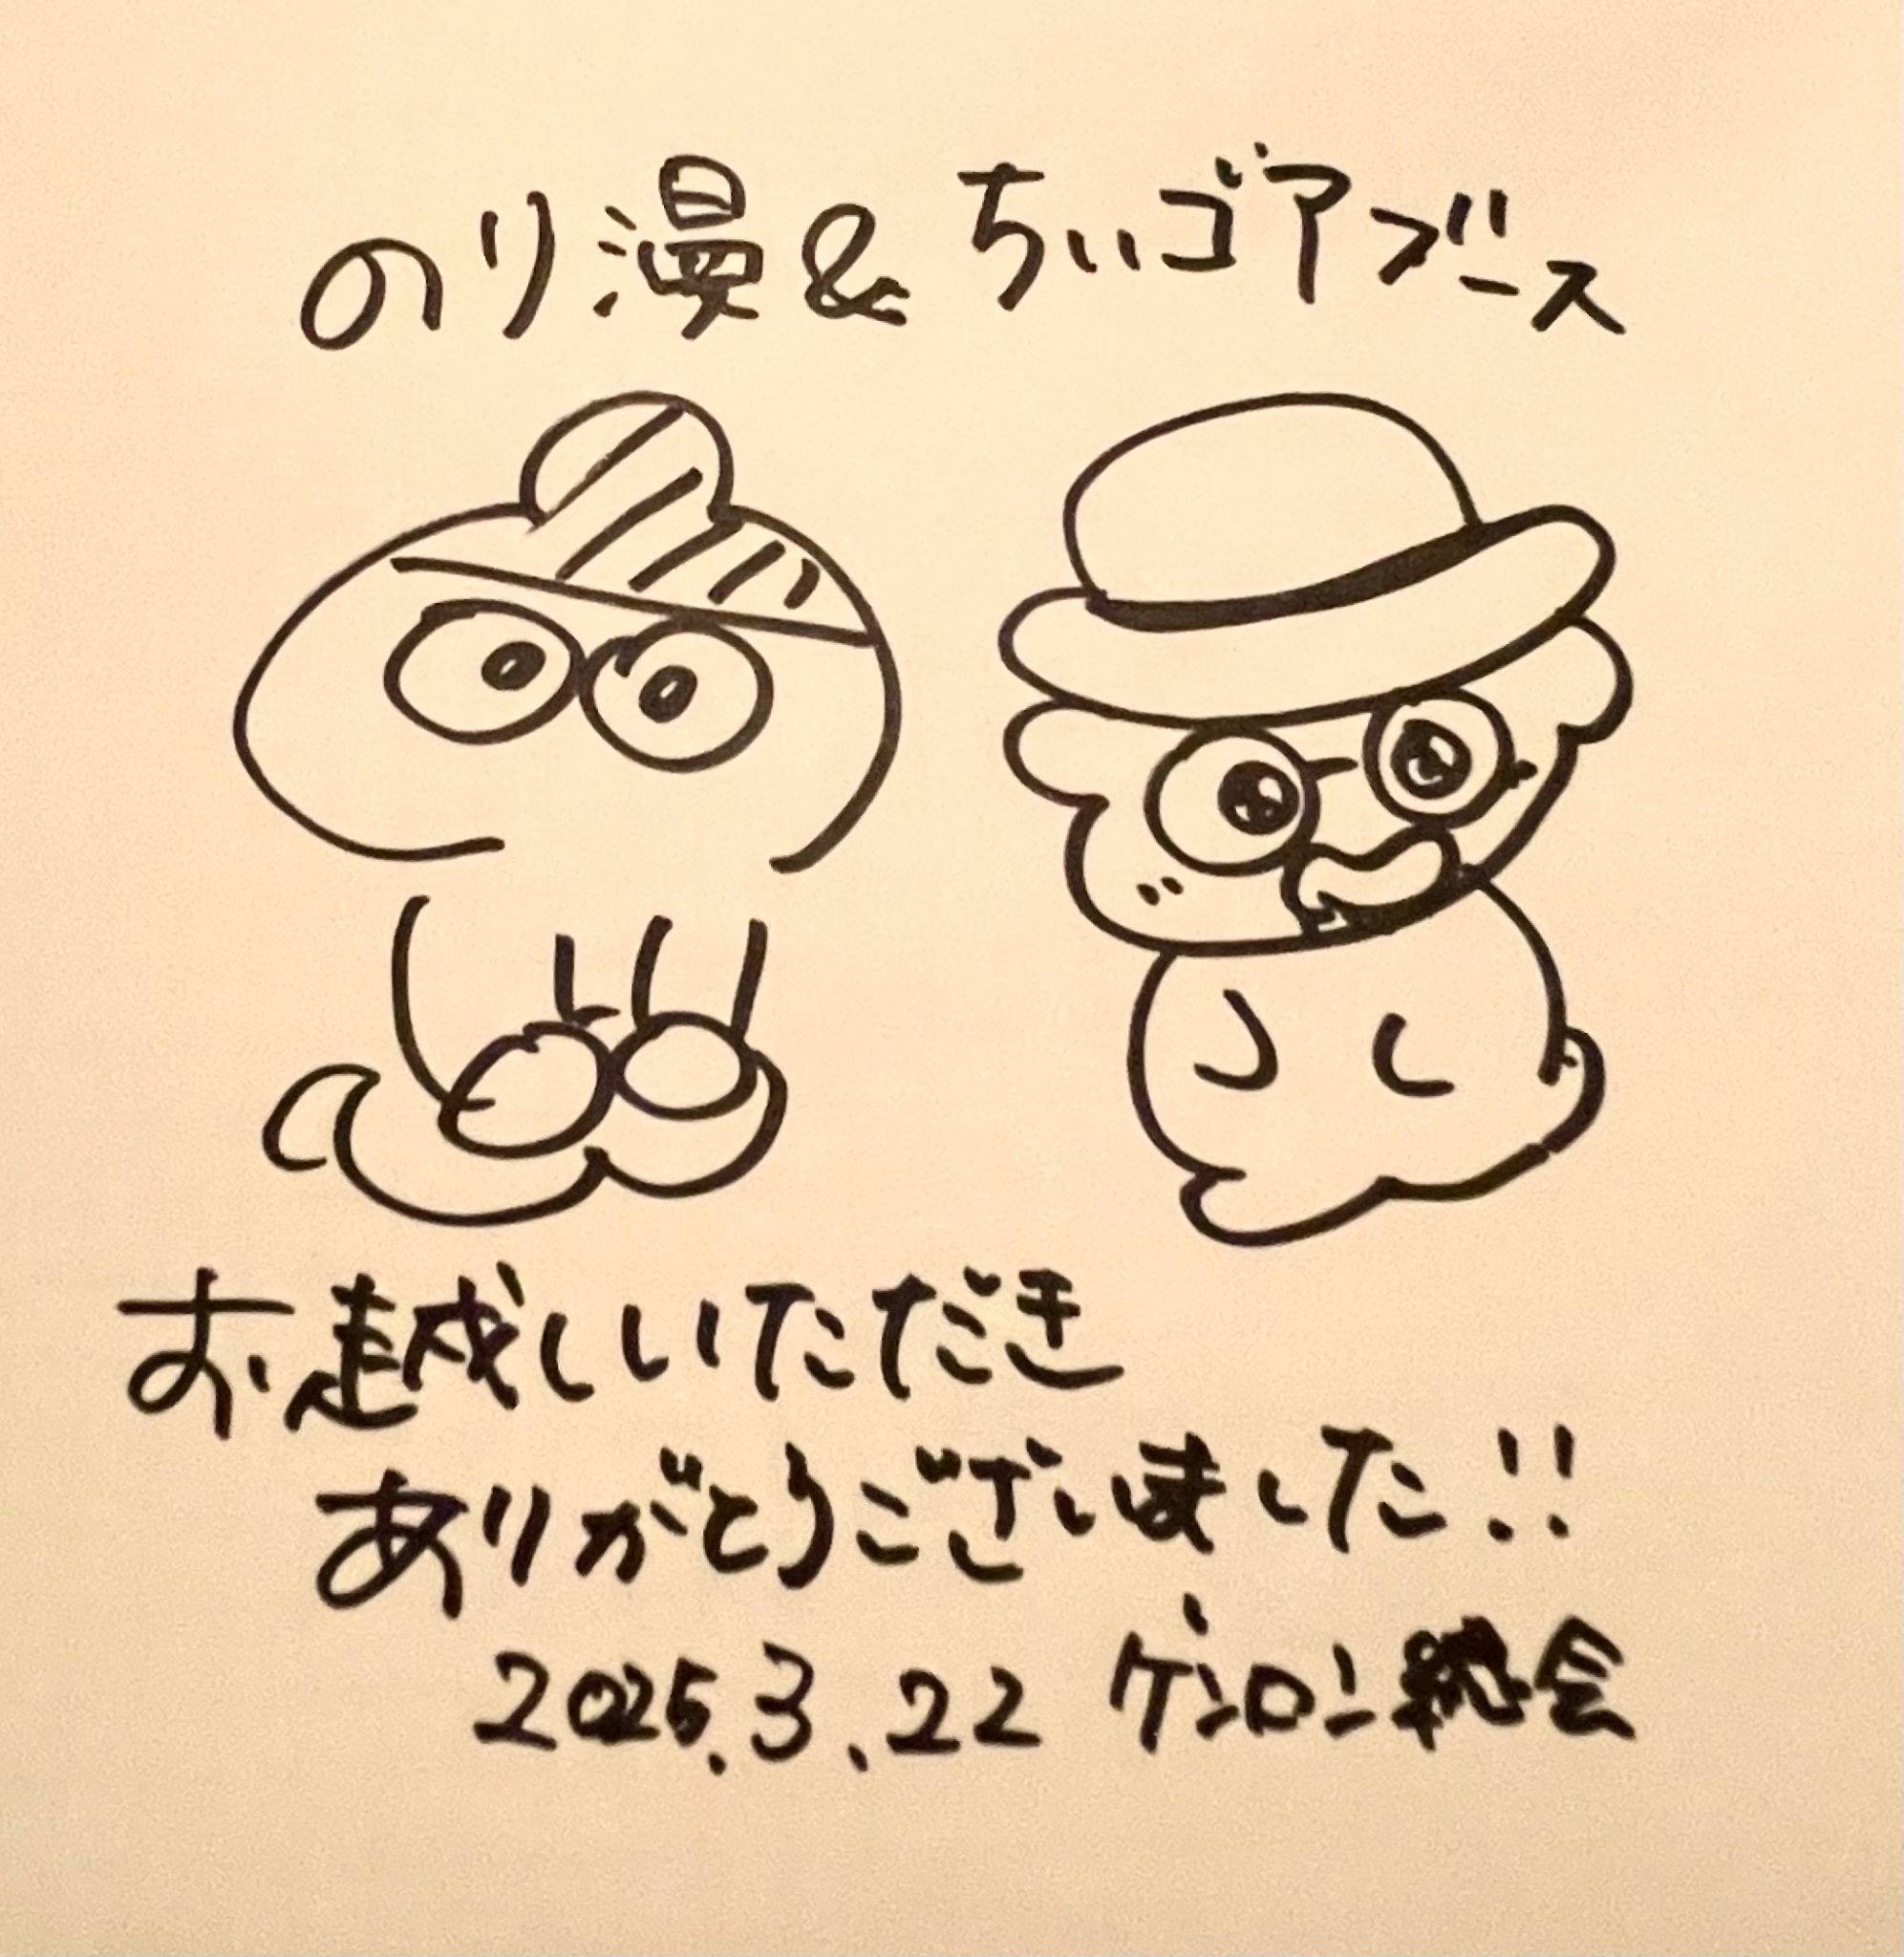 のり漫&ちいゴアブース
お越しいただき
ありがとうございました!!
2025.3.22 ゲンロン総会